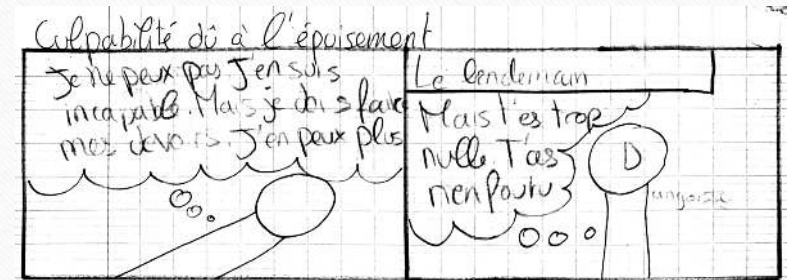 Culpabilité dû à l'épuisement
Je ne peux pas J'en suis
incapable. Mais je dois faire
mes devoirs. J'en peux plus
Le lendemain
Mais t'es trop
nulle. T'as
rien foutu
D
angoisse